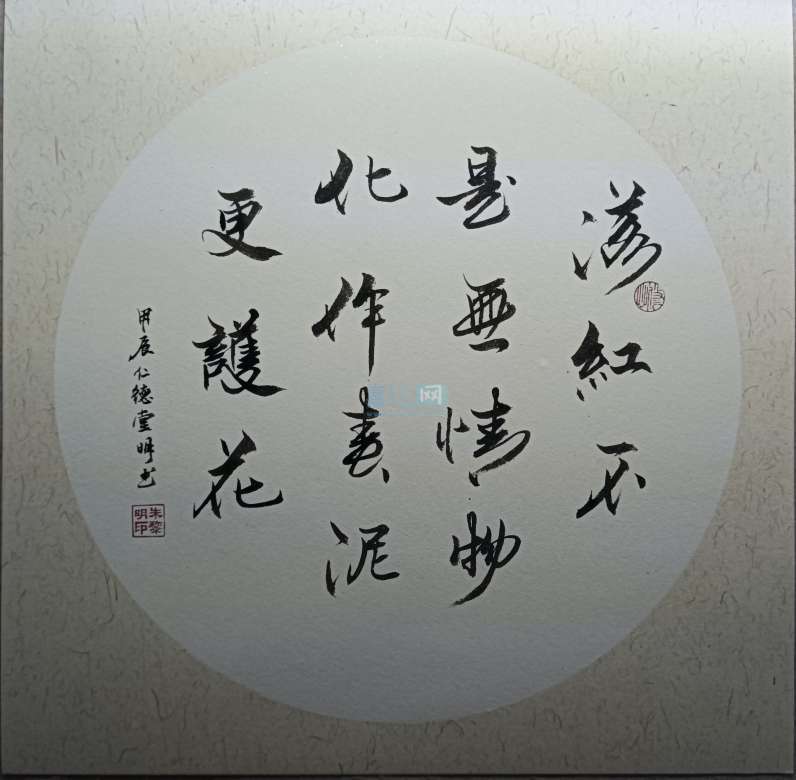 落紅不
是無情物
化作春泥
更護花
甲辰仁德堂明书
朱黎
明印
网